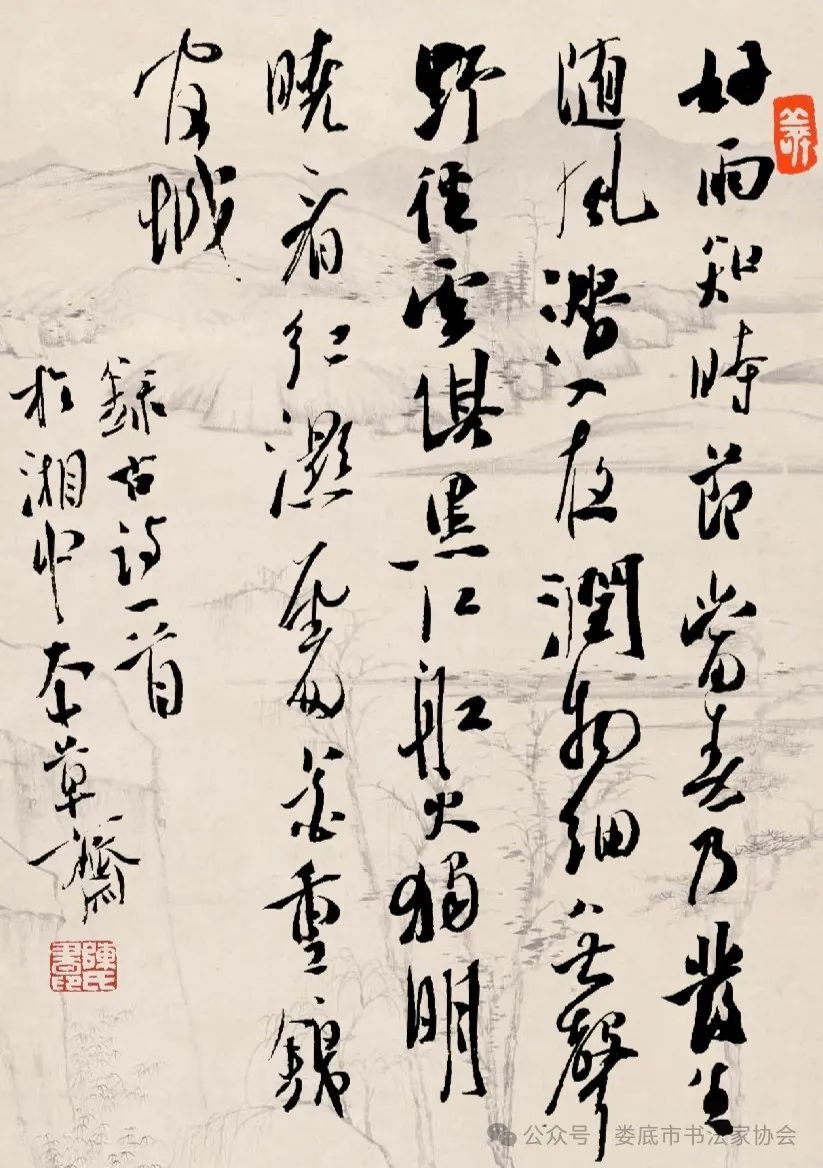 好雨知時節當春乃發生
随風潛入夜潤物細無聲
野徑雲俱黑江船火獨明
曉看紅濕處花重錦
官城
錄古詩一首
於湘中本草齋
陳氏書印
公众号 · 娄底市书法家协会